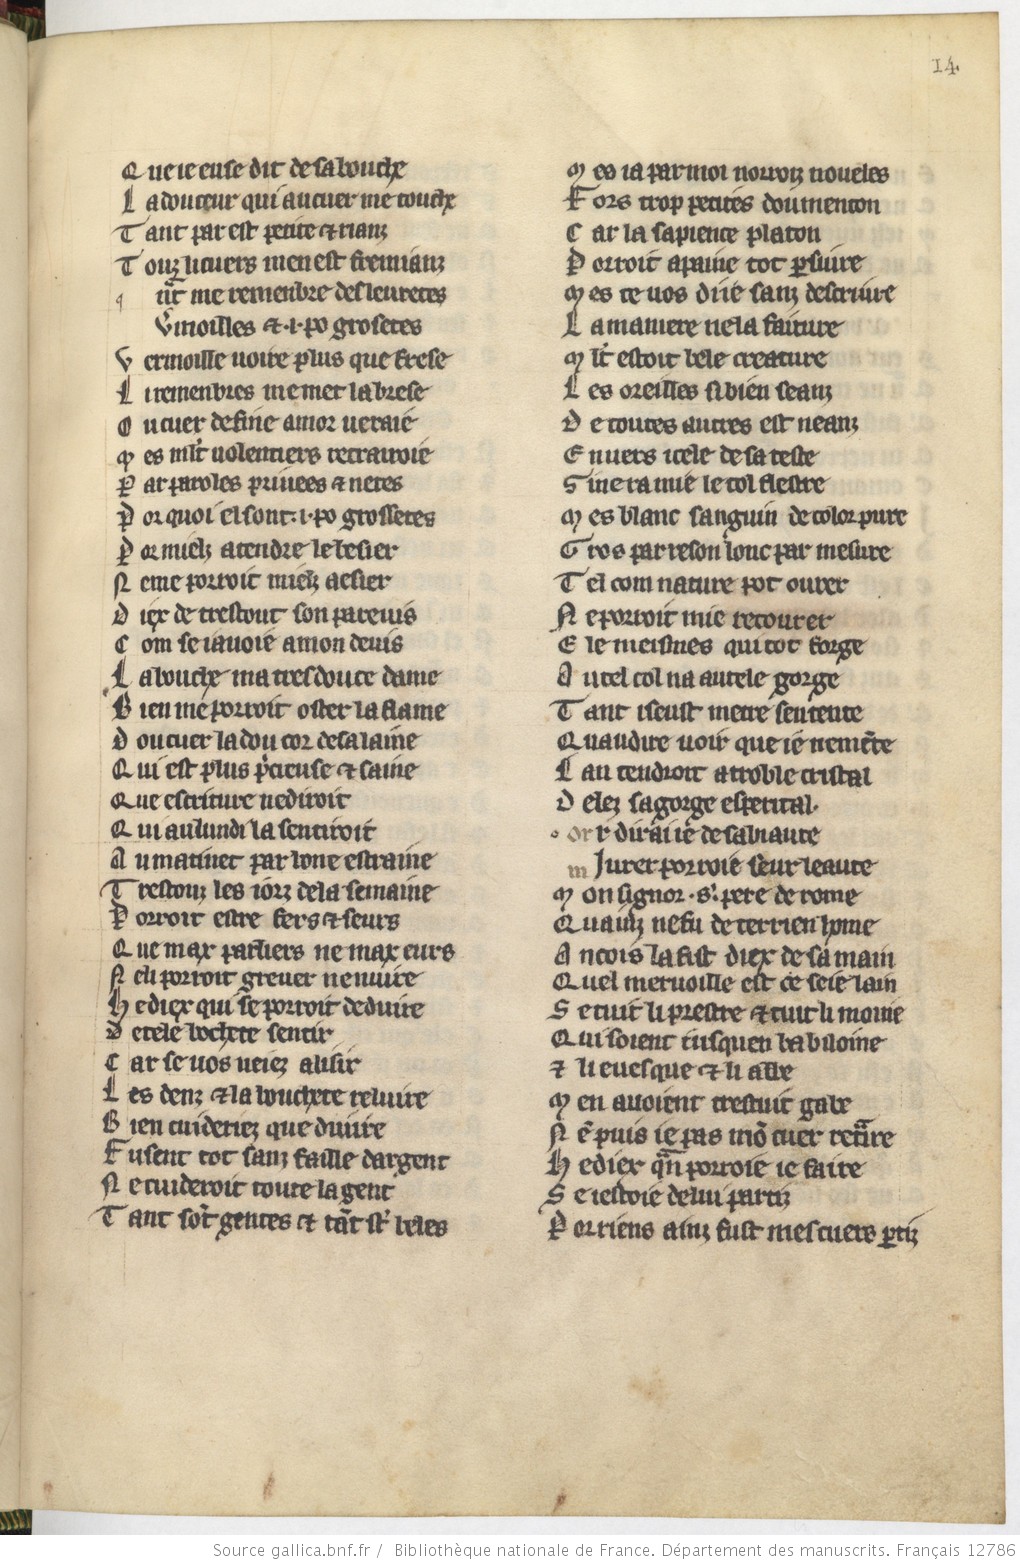 14.
Que ie euse dit de sa bouche
La douceur qui au cuer me touche
Tant par est petite et rianz
Touz li cuers men est fremianz
q
ñt me remenbre des leuretes
Vmoilles et .i. po grosetes
Vermoille voire plus que frese
Li remenbres me met la brese
Ou cuer de fine amor veraie
Mes mlt volentiers retrairoie
Par paroles privees et netes
Por quoi el sont .i. po grossetes
Por mielz atendre le besier
Ne me porroit mielz aesier
Diex de trestout son parevis
Com se iavoie a mon devis
La bouche ma tres douce dame
Bien me porroit oster la flame
Dou cuer la doucor de salaine
Qui est plus pcieuse et saine
Que escriture ne diroit
Qui au lundi la sentiroit
Au matinet par bone estraine
Trestouz les iorz de la semaine
Porroit estre fers et seurs
Que max parliers ne max eurs
Ne li porroit grever ne nuire
He diex qui se porroit deduire
De tele bochete sentir
Car se vos veiez a lisir
Les denz et la bouchete reluire
Bien cuideriez que divire
Fusent tot sanz faille dargent
Ne cuideroit toute la gent
Tant sot gentes et tāt st beles
Mes ia par moi norroiz noveles
Fors trop petites dou menton
Car la sapience platon
Porroit a paine tot psuire
Mes ce vos di ie sanz descrivre
La maniere ne la faiture
Mlt estoit bele creature
Les oreilles si bien seanz
De toutes autres est neanz
Envers icele de sa teste
Si ne ra mie le col flestre
Mes blanc sanguin de color pure
Gros par reson lonc par mesure
Tel com nature pot ovrer
Ne porroit mie recovrer
Ele meismes qui tot forge
Autel col na autele gorge
Tant i seust metre sentente
Quan dire voir que ie ne mēte
Lan tendroit a troble cristal
Delez sa gorge esperital.
or r dirai ie de sa biaute
m Jurer porroie seur leaute
Mon signor .s. pere de rome
Quainz ne fu de terrien home
Ancois la fist diex de sa main
Quel mervoille est ce se ie lain
Se tuit li prestre et tuit li moine
Qui soient iusquen babiloine
Et li evesque et li abe
Men avoient trestuit gabe
Nē puis ie pas mō cuer retraire
He diex qn porroie ie faire
Se iestoie de lui partiz
Por riens ainz fust mes cuers ptiz
Source gallica.bnf.fr / Bibliothèque nationale de France. Département des manuscrits. Français 12786